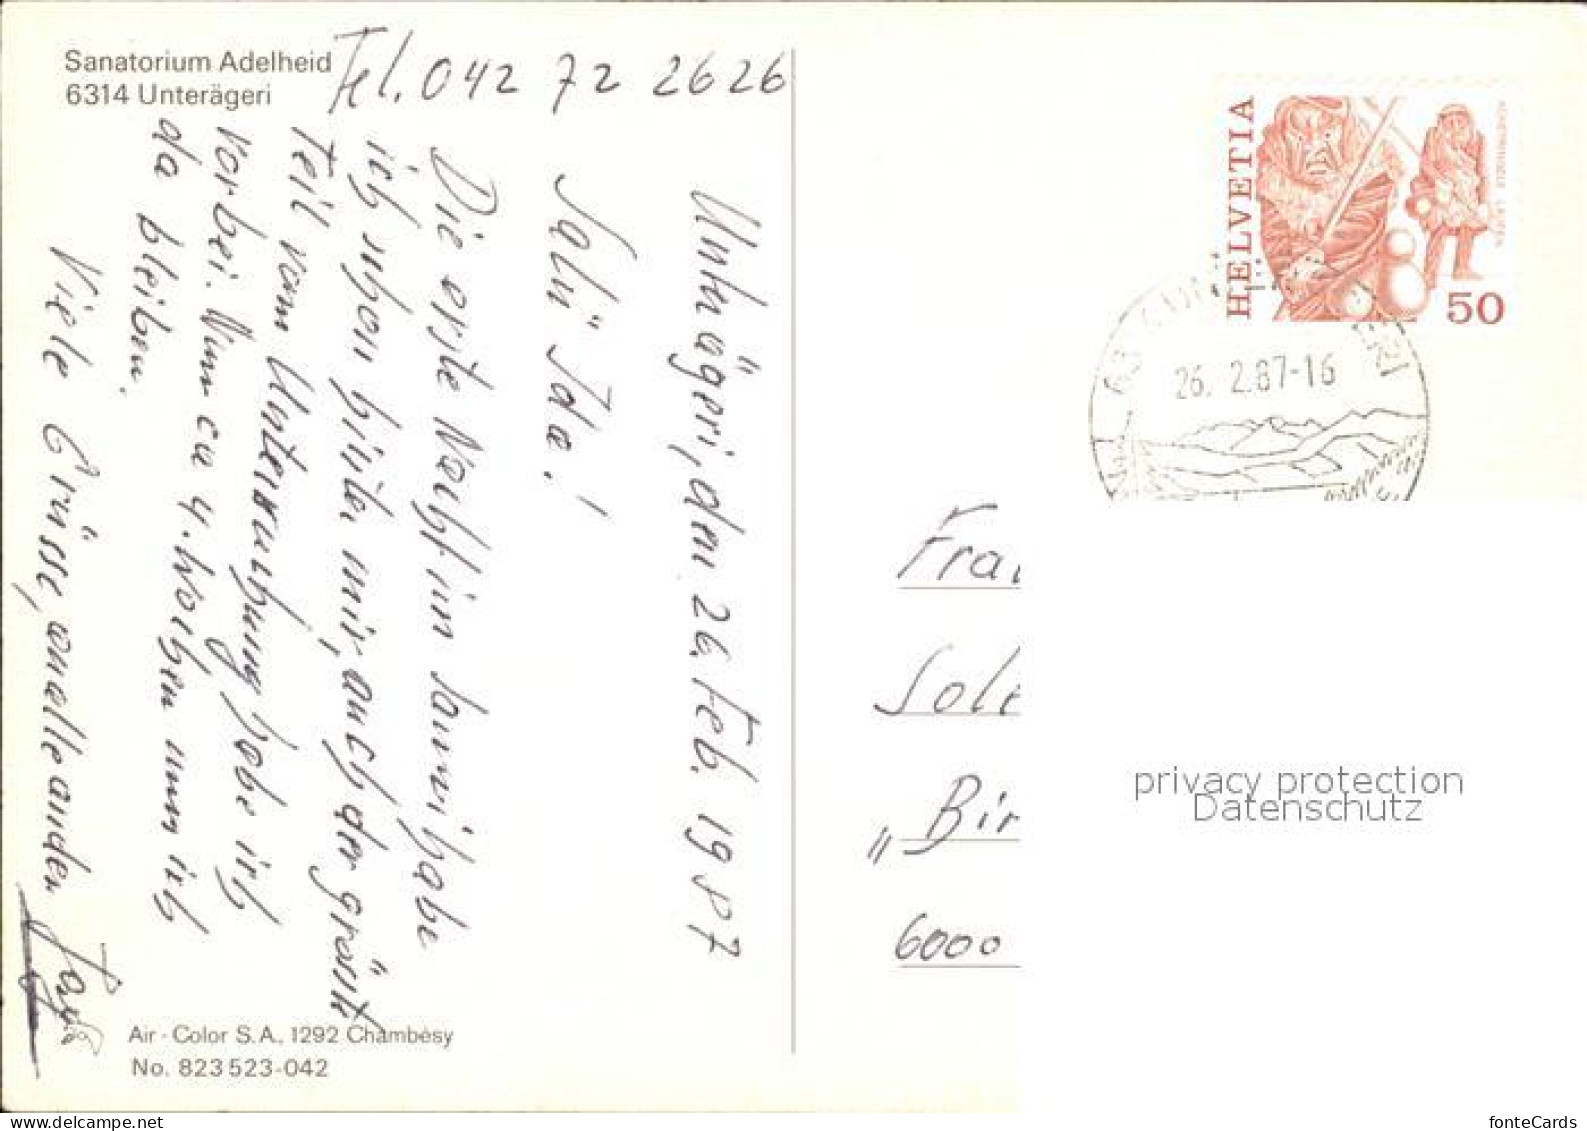 Sanatorium Adelheid
6314 Unterägeri
Tel. 042 72 2626
Unterägeri, den 26. Feb. 1987
Salü Ida!
Die erste Nacht im Sanni habe
ich schon hinter mir, auch der grösste
Teil vom Untersuchung habe ich
vorbei. Nun ca 4. Wochen muss ich
da bleiben.
Viele Grüsse, an alle anden
Air-Color S.A., 1292 Chambésy
No. 823 523-042
HELVETIA
50
26. 2.87-16
Frau
Sole
"Bir
6000
privacy protection
Datenschutz
fonteCards